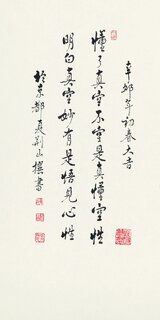 辛卯年初春大吉
懂了真空不空是真懂空性
明白真空妙有是悟見心性
於京都夏荆山撰書